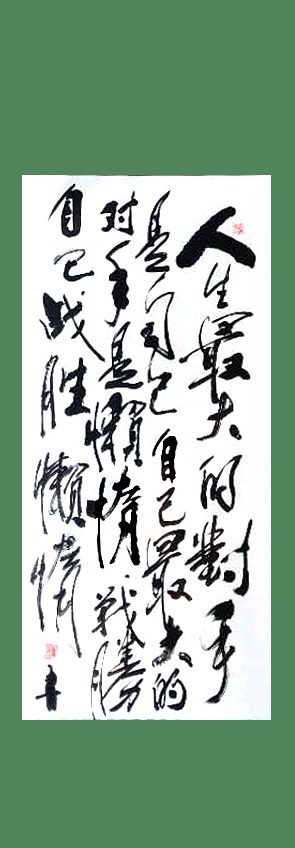 人生最大的對手
是自己自己最大的
对手是懶惰戰勝
自己战胜懶惰
書